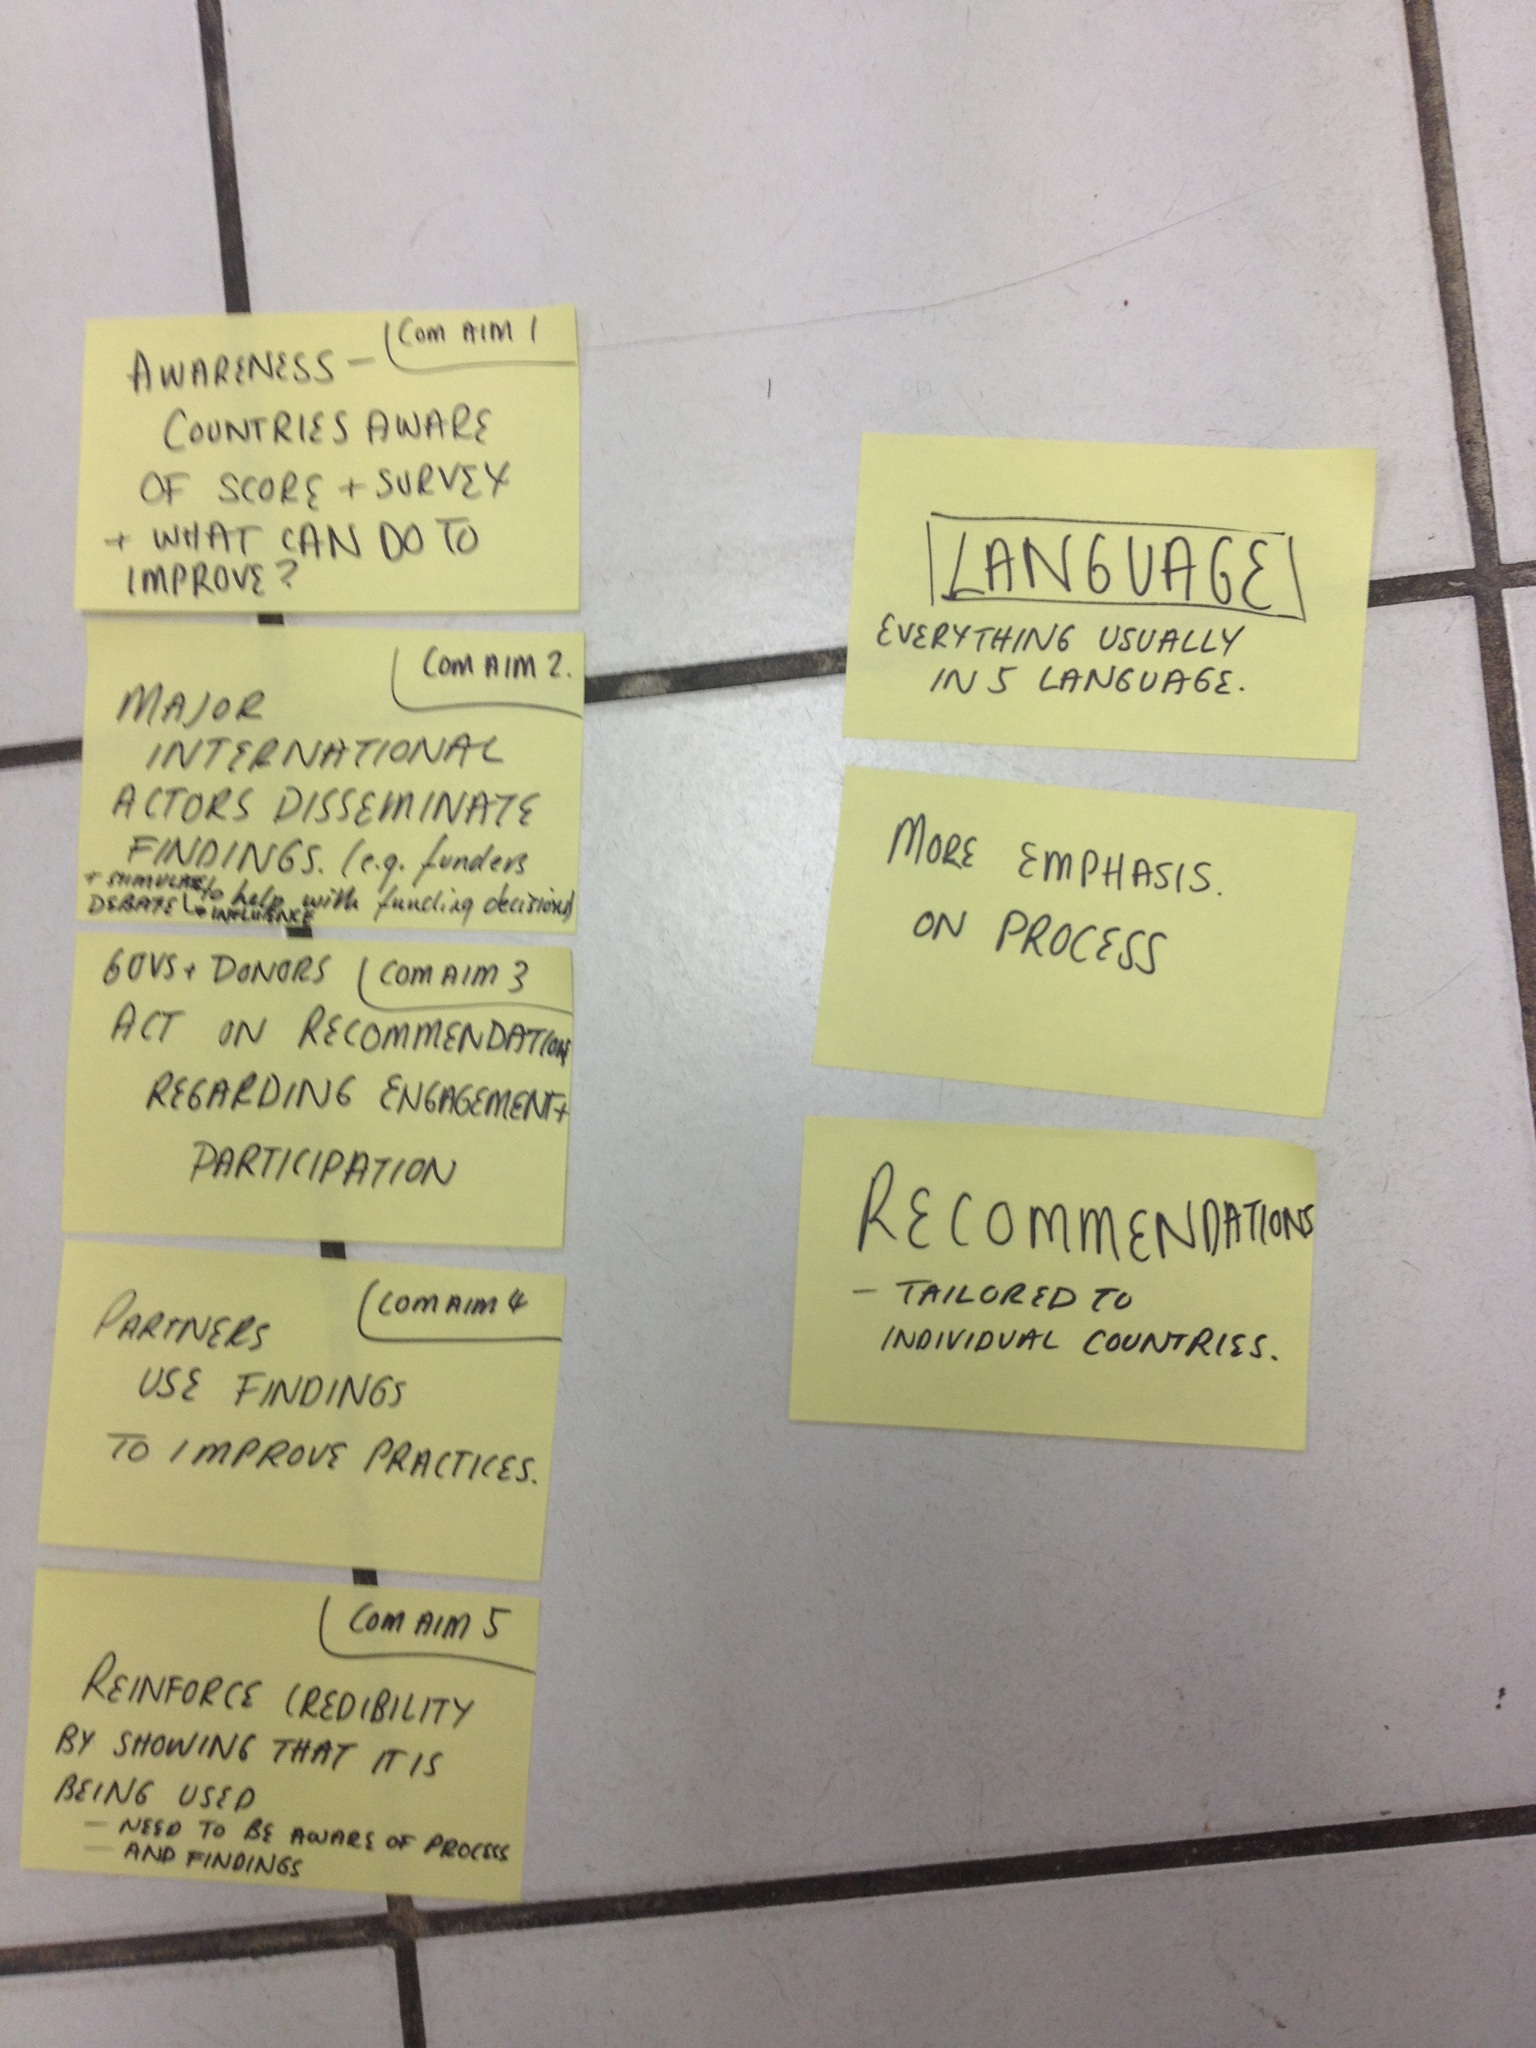 COM AIM 1
AWARENESS –
COUNTRIES AWARE
OF SCORE + SURVEY
+ WHAT CAN DO TO
IMPROVE?
COM AIM 2.
MAJOR
INTERNATIONAL
ACTORS DISSEMINATE
FINDINGS. (e.g. funders
to help with funding decisions)
+ STIMULATE
DEBATE
+ INFLUENCE
COM AIM 3
GOVS + DONORS
ACT ON RECOMMENDATIONS
REGARDING ENGAGEMENT +
PARTICIPATION
COM AIM 4
PARTNERS
USE FINDINGS
TO IMPROVE PRACTICES.
COM AIM 5
REINFORCE CREDIBILITY
BY SHOWING THAT IT IS
BEING USED
– NEED TO BE AWARE OF PROCESS
– AND FINDINGS
LANGUAGE
EVERYTHING USUALLY
IN 5 LANGUAGE.
MORE EMPHASIS.
ON PROCESS
RECOMMENDATIONS
– TAILORED TO
INDIVIDUAL COUNTRIES.